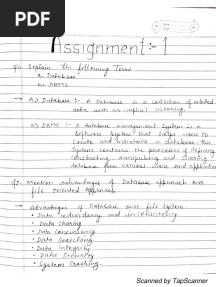 PDF
Assignment:- 1
Q1. Explain the following Term
a. Database
b. DBMS
→ A) Database :- A Database is a collection of related
data with an implicit meaning.
B) DBMS :- A database management system is a
Software System that helps users to
Create and maintain a database. this
System contains the processes of defining
constructing, manipulating and sharing
database from various users and application
Q2. Mention advantages of Database approach over
file oriented approach
→ Advantages of Database over file System
• Data redundancy and inconsistency
• Data Sharing
• Data Concurrency
• Data Searching
• Data Integrity
• Data Security
• System Crashing.
Scanned by TapScanner